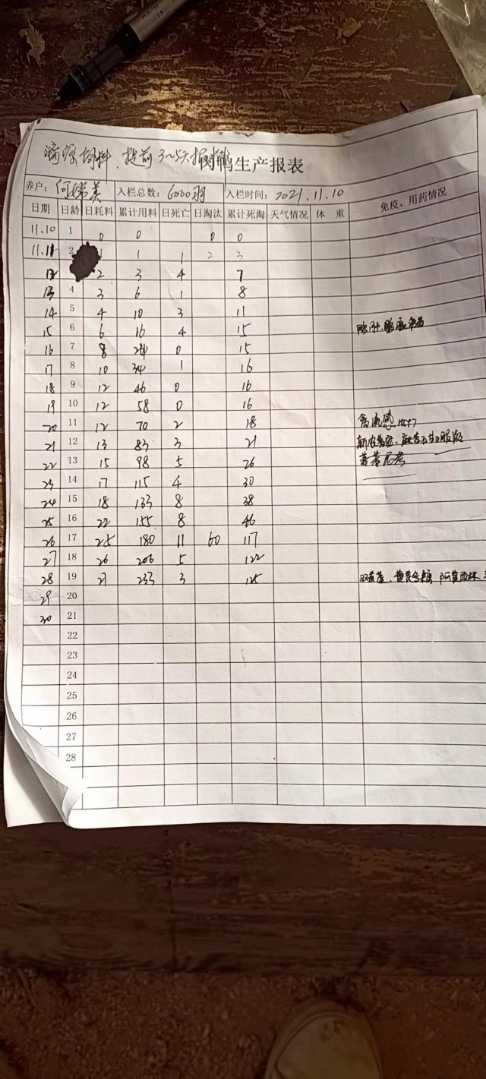 肉鸭生产报表
养户: 何 美 入栏总数: 6000羽 入栏时间: 2021.11.10
日期 日龄 日耗料 累计用料 日死亡 日淘汰 累计死淘 天气情况 体 重 免疫、用药情况
11.10 1 0 0 0 0
11.11 1 1 2 3
12 2 3 4 7
13 4 3 6 1 8
14 5 4 10 3 11
15 6 6 16 4 15
16 7 8 24 0 15
17 8 10 34 1 16
18 9 12 46 0 16
19 10 12 58 0 16
20 11 12 70 2 18
21 12 13 83 3 21
22 13 15 98 5 26
23 14 17 115 4 30
24 15 18 133 8 38
25 16 22 155 8 46
26 17 25 180 11 60 117
27 18 26 206 5 122
28 19 27 233 3 125
29 20
30 21
22
23
24
25
26
27
28